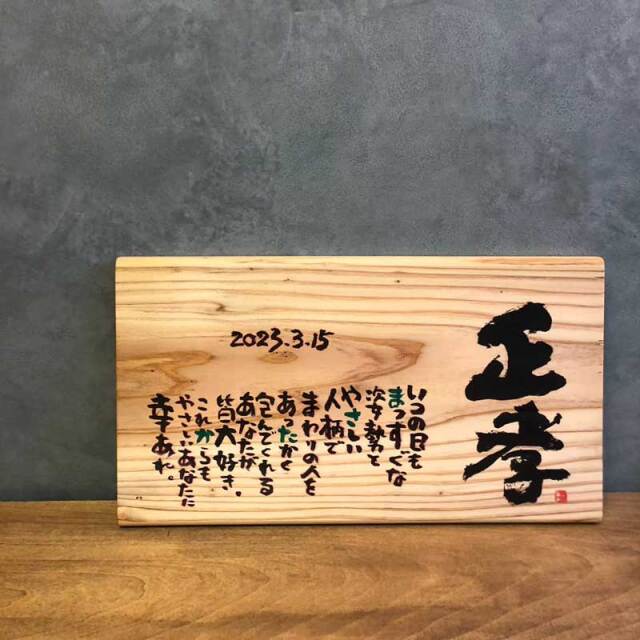 正孝
いつの日も
まっすぐな
姿勢と
やさしい
人柄で
まわりの人を
あったかく
包んでくれる
あなたが
皆大好き。
これからも
やさしいあなたに
幸あれ。
2023.3.15